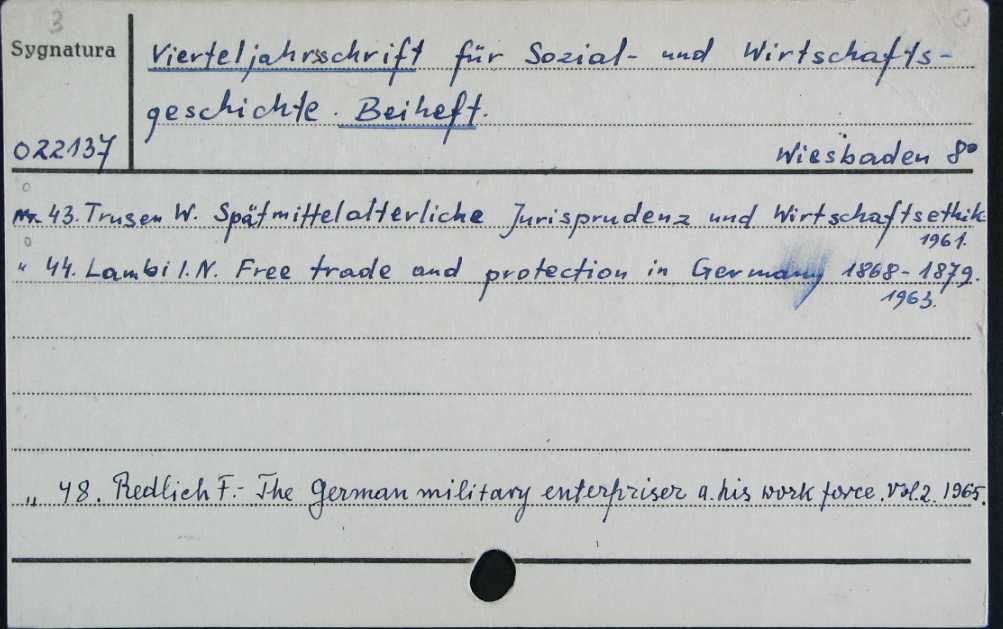 3
Sygnatura
Vierteljahrsschrift für Sozial- und Wirtschafts-
geschichte. Beiheft.
022137
Wiesbaden 8°
Nr. 43. Trusen W. Spätmittelalterliche Jurisprudenz und Wirtschaftsethik
1961.
" 44. Lambi I. N. Free trade and protection in Germany 1868-1879.
1963.
" 48. Redlich F.- The German military enterpriser a. his work force. Vol. 2. 1965.